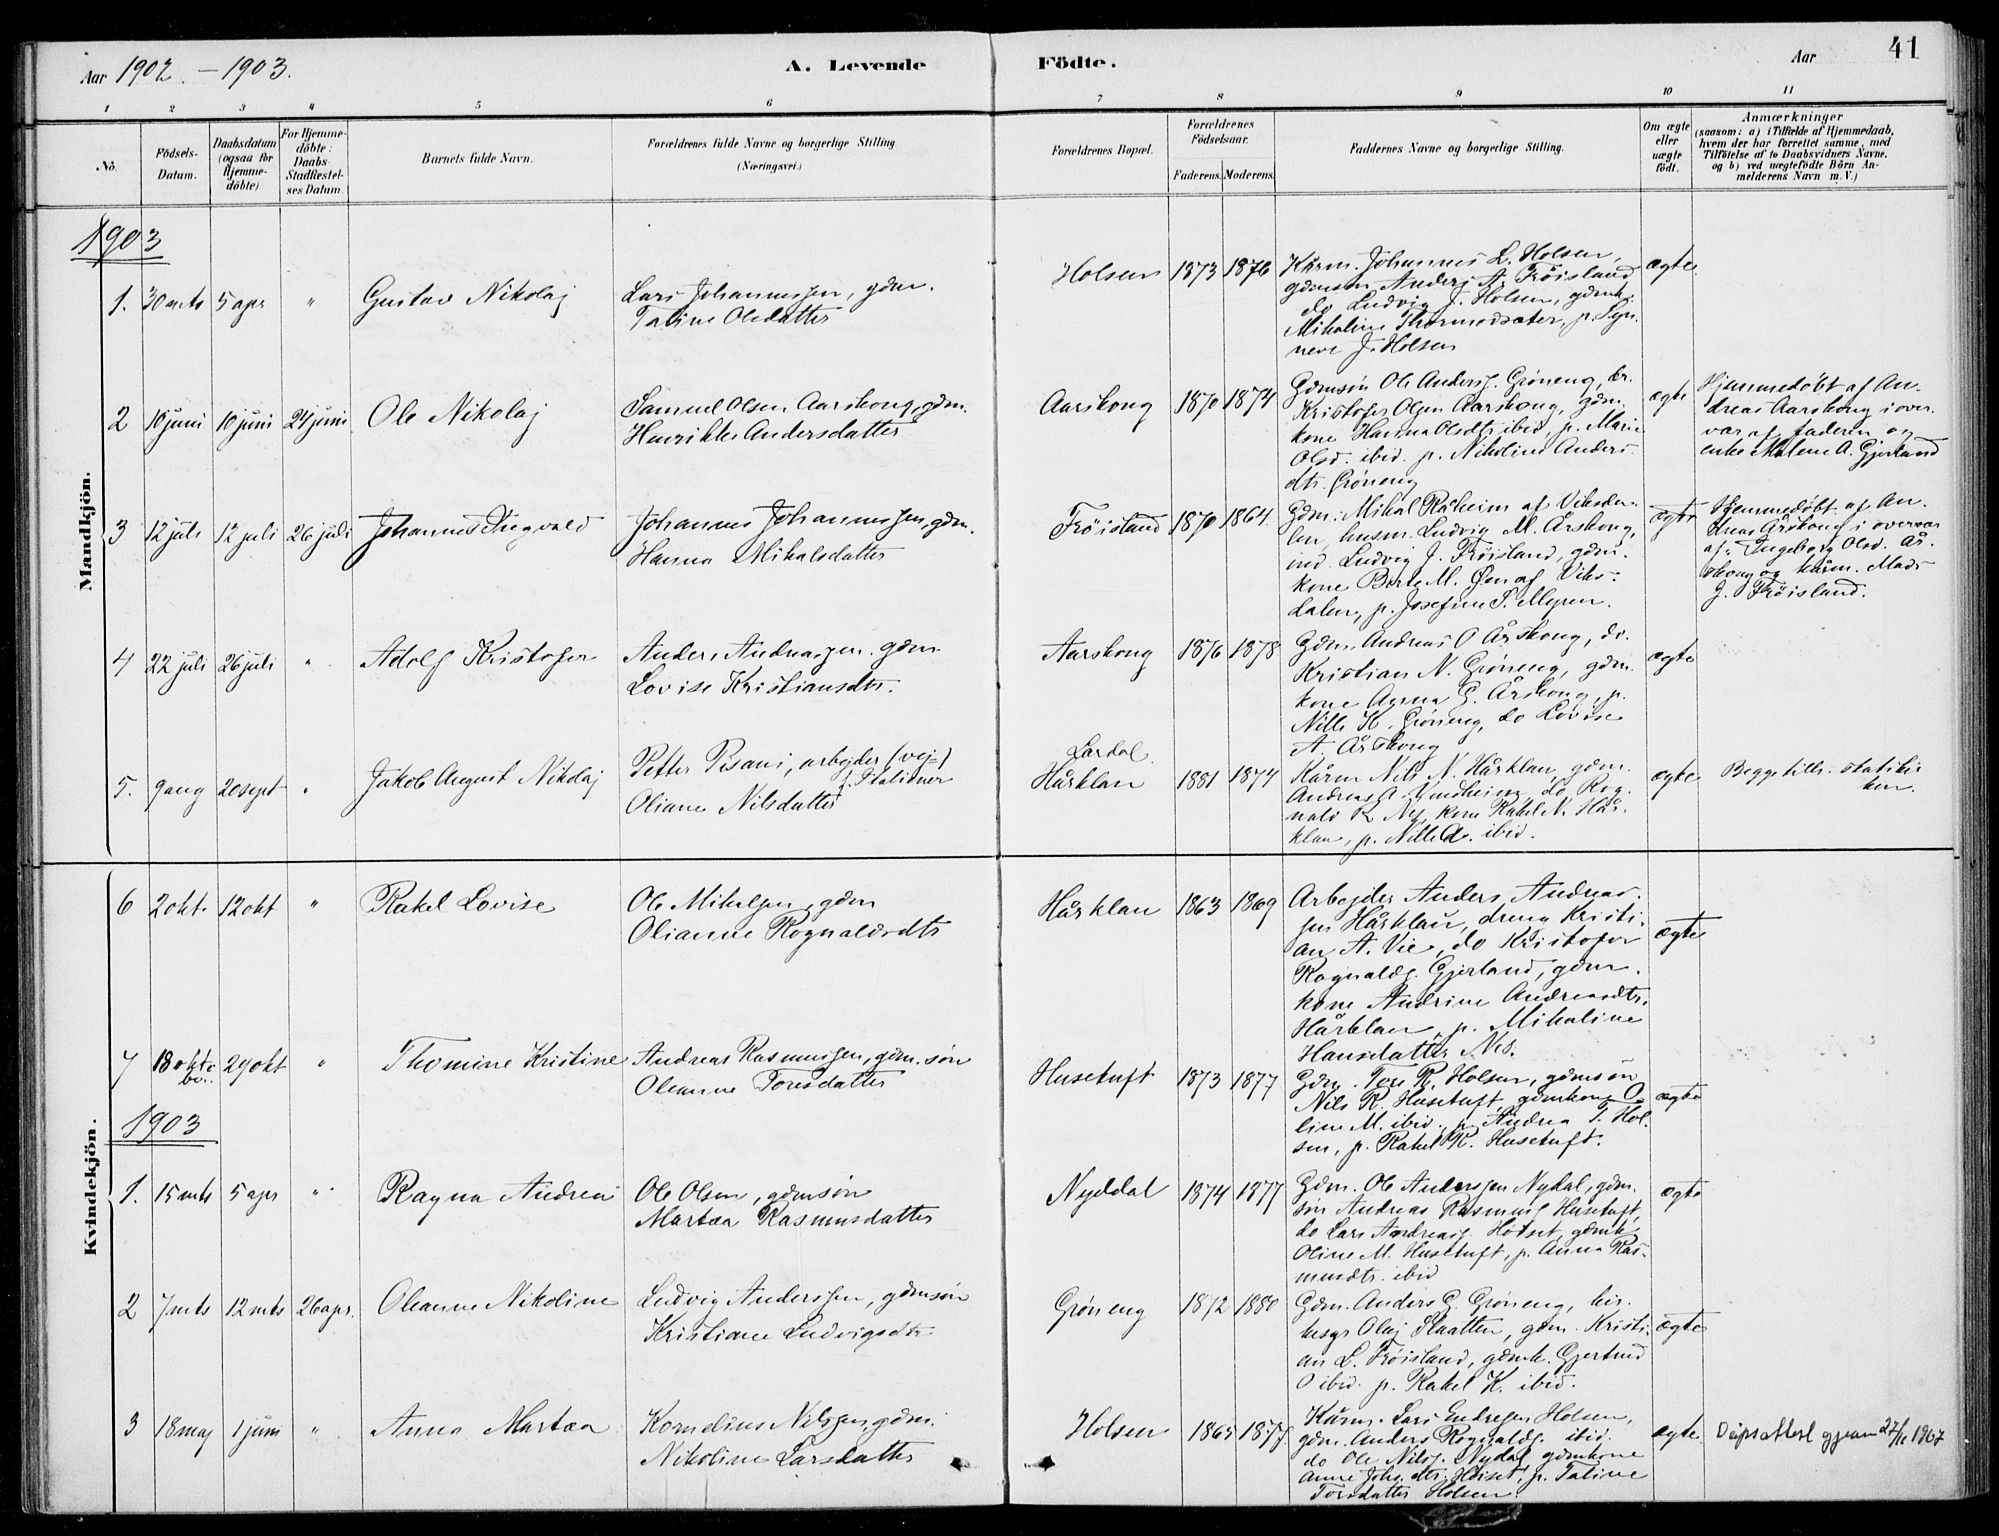 Aar 1902. – 1903.
A. Levende Födte.
Aar
41
1 2 3 4 5 6 7 8 9 10 11
No.
Födsels-Datum.
Daabsdatum (ogsaa for Hjemme-döbte)
For Hjemme-döbte: Daabs-Stadfæstel-ses Datum.
Barnets fulde Navn.
Forældrenes fulde Navne og borgerlige Stilling. (Næringsvei.)
Forældrenes Bopæl.
Forældrenes Födselsaar.
Faderens. Moderens.
Faddernes Navne og borgerlige Stilling.
Om ægte eller uægte født.
Anmærkninger
(saasom: a) i Tilfælde af Hjemmedaab,
hvem der har forrettet samme, med
Tilföielse af to Daabsvidners Navne,
og b) ved uægtefödte Börn An-
melderens Navn m. V.)
Mandkjön.
1903
1. 30 mts 5 apr " Gustav Nikolaj
Lars Johannessen, gdm.
Taline Olsdatter
Holsen 1873 1876
Kårm. Johannes L. Holsen,
gdmsøn Anders A. Frøisland
do Ludvig J. Holsen, gdmk.
Mikaline Thormodsæter, p. Syn-
neve J. Holsen
ægte
2 10 juni 10 juni 24 juni Ole Nikolaj
Samuel Olsen Aarskong, gdm.
Henrikke Andersdatter
Aarskong 1870 1874
Gdmsøn Ole Anders. Grøneng, do.
Kristofer Olsen Aarskong, gdm.
kone Hanna Olsdtr. ibid, p. Marie
Olsd. ibid. p. Nikoline Anders-
dtr. Grøneng
ægte
Hjemmedøbt af An-
dreas Aarskong i over-
vær af faderen og
enke Malene A. Gjerland
3 12 juli 12 juli 26 juli Johannes Ingvald
Johannes Johannessen, gdm.
Hanna Mikalsdatter
Frøisland 1870 1864.
Gdm. Mikal Råheim af Viksda-
len, husm. Ludvig M. Årskong,
ind. Ludvig J. Frøisland, gdm.
kone Berte M. Øen af Viks-
dalen, p. Josefine S. Myren.
ægte
Hjemmedøbt af An-
dreas Årskong i overvær
af: Ingeborg Olsd. År-
skong og kårm. Mads
J. Frøisland.
4 22 juli 26 juli " Adolf Kristofer
Anders Andreassen. gdm
Lovise Kristiansdtr.
Aarskong 1876 1878
Gdm. Andreas O Årskong, do.
Kristian N. Grøneng, gdm.
kone Anna G. Årskong, p.
Nille K. Grøneng, do Lovise
A. Årskong
ægte
5. 9 aug 20 sept " Jakob August Nikolaj
Petter Pisani, arbejder (vej-)
f. Italiener
Oliane Nilsdatter
Lærdal.
Hårklau 1881 1874
Kårm Nils N. Hårklau, gdm.
Andreas A. , do Rog-
nald R Nes, kone Rakel N. Hår-
klau, p. Nille A. ibid.
ægte
Begge tills. statskir
ken.
Kvindekjön.
6 2 okt. 12 okt " Rakel Lovise
Ole Mikalsen, gdm
Olianne Rognaldsdtr
Hårklau 1863 1869
Arbejder Anders Andreas-
sen Hårklau, dreng Kristi-
an A. Vie, do Kristofer
Rognalds. Gjerland, gdm.
kone Andrine Andreasdtr.
Hårklau, p. Mikaline
Hansdatter Nes.
ægte
7 18 okto-
ber. 29 okt " Thomine Kristine
Andreas Rasmussen, gdm. søn
Oleanne Toresdatter
Husetuft 1873 1877
Gdm. Tore R. Holsen, gdmsøn
Nils R. Husetuft gdmkone O-
line M. ibid, p. Andrea T. Hol-
sen, p. Rakel R. Husetuft.
ægte
1903
1. 15 mts 5 apr " Ragna Andrea
Ole Olsen, gdmsøn
Martea Rasmusdatter
Nyddal 1874 1877
Gdm. Ole Anderssen Nydal, gdm.
søn Andreas Rasmuss Husetuft,
do Lars Andreass. Hotset, gdmk.
Oline M. Husetuft, p. Anna Ras-
musdtr. ibid
ægte
2 7 mts 12 mts 26 apr. Oleanne Nikoline
Ludvig Anderssen, gdmsøn
Kristiane Ludvigsdtr.
Grøneng 1872 1880
Gdm. Anders G. Grøneng, kir-
kesgr Olaj Slaatten, gdm. Kristi-
an L. Frøisland, gdmk. Gjertrud
O ibid. p. Rakel K. ibid.
ægte
3 18 maj 1 juni " Anna Martea
Kornelius Nilssen, gdm.
Nikoline Larsdatter
Holsen 1865 1877.
Kårm. Lars Endresen Holsen,
gdm. Anders Rognalds. ibid.
do Ole Nilss. Nydal gdmkone
Anne Johs. dtr. Høiset, p. Taline
Torsdatter Holsen.
ægte
Dåpsattest 1967